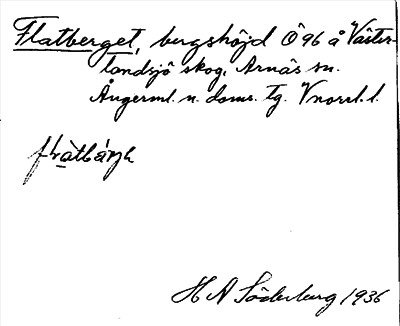 Flatberget, bergshöjd Ö 96 å Väster-
landsjö skog, Arnäs sn.
Ångerml. n. doms. Tg. Vnorrl. l.
H A Söderberg 1936